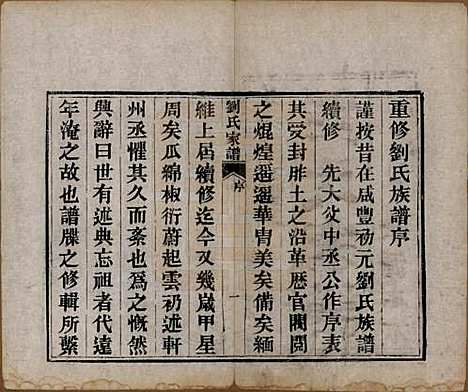 重修劉氏族譜序
謹按昔在咸豐初元劉氏族譜
續修 先大父中丞公作序表
其受封胙土之沿革歷官閥閱
之焜煌遥遥華冑美矣備矣緬
劉氏家譜 序 一
維上屆續修迄今又幾嵗甲星
周矣瓜綿椒衍蔚起雲礽述軒
州丞懼其久而紊也爲之慨然
興辭曰世有述典忘祖者代遠
年淹之故也譜牒之修輯所繫